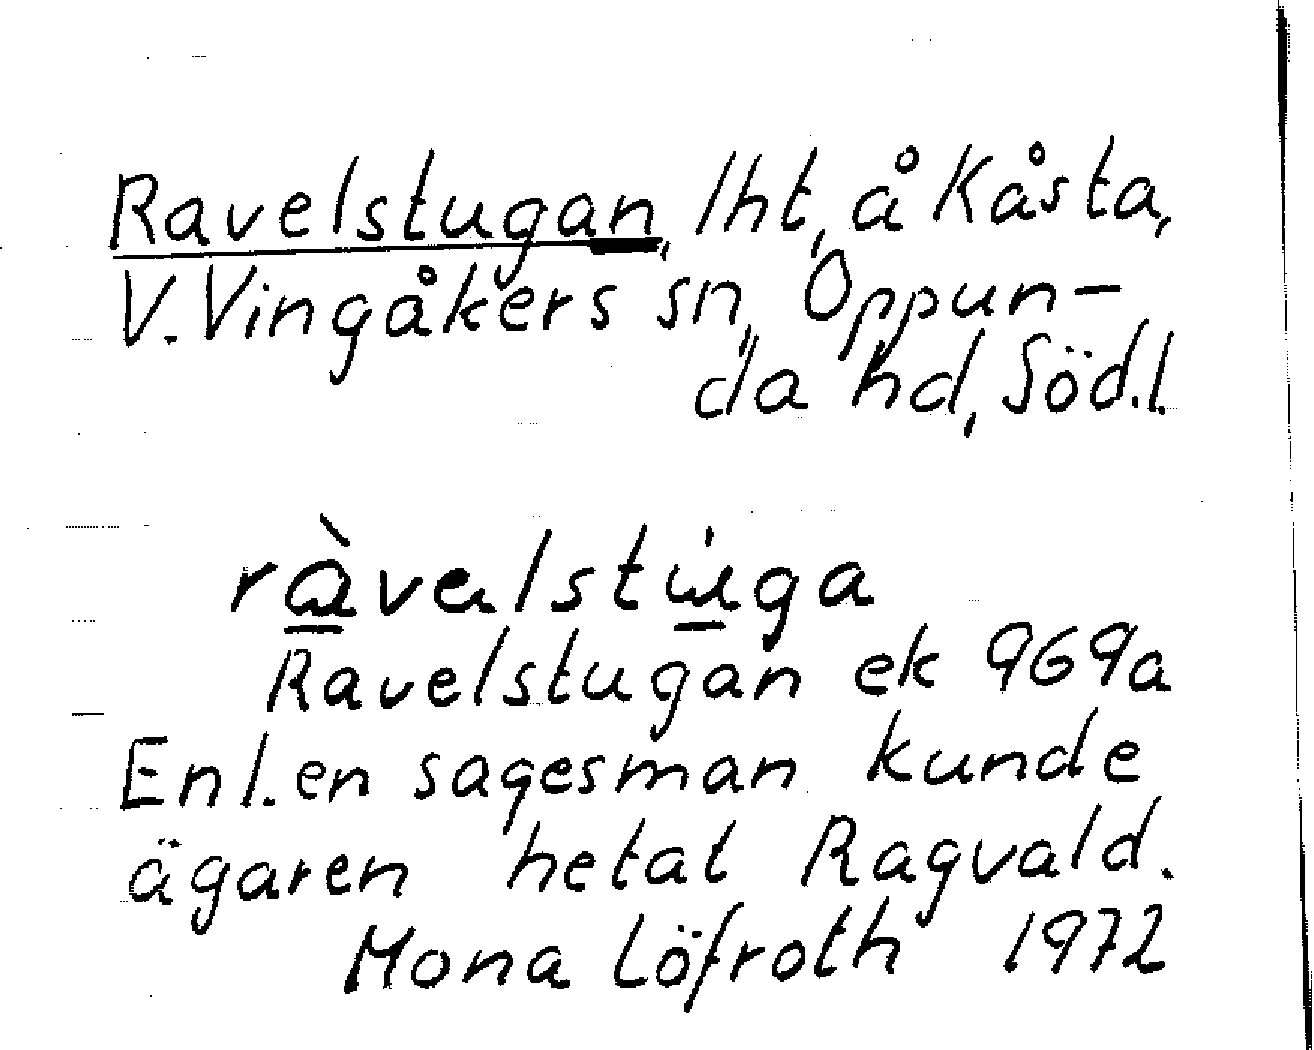 Ravelstugan, lht, å Kåsta,
V. Vingåkers sn, Oppun-
da hd, Söd.l.
ràvalstu̇ga
Ravelstugan ek 969a
Enl. en sagesman kunde
ägaren hetat Ragvald.
Mona Löfroth 1972